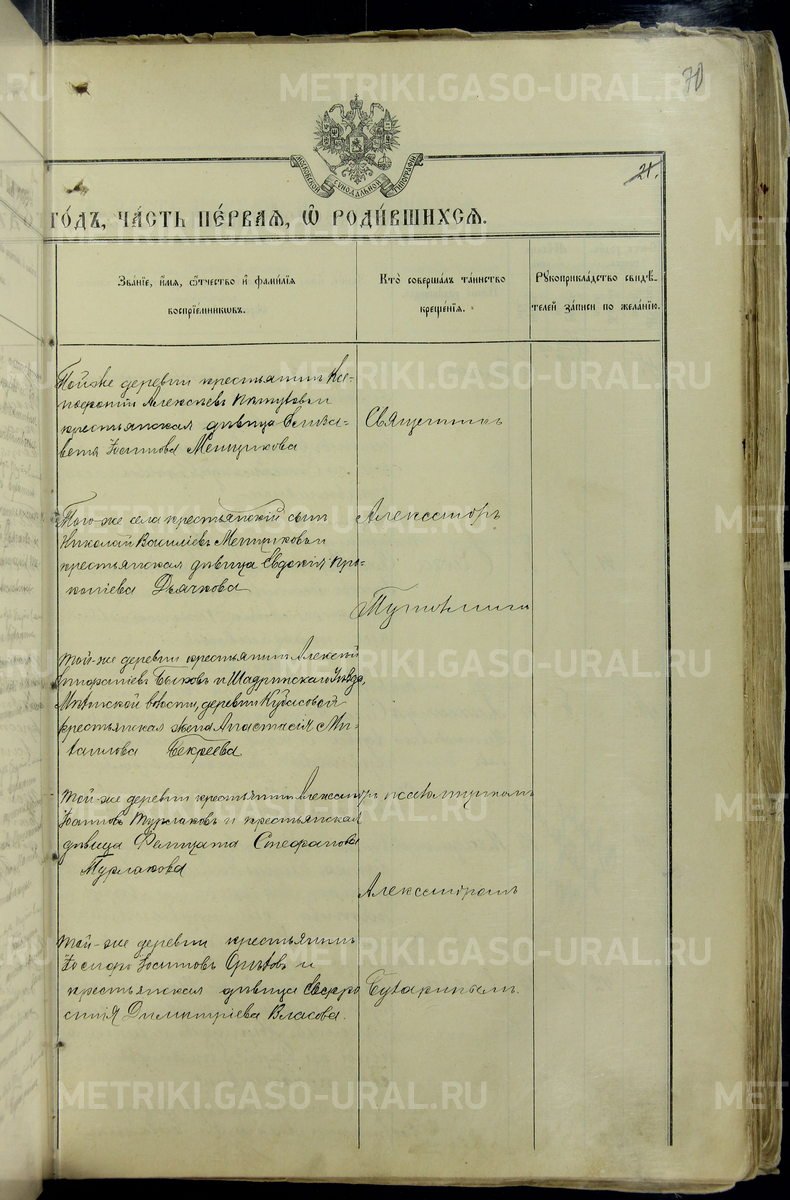 METRIKI.GASO-URAL.RU
70
МОСКОВСКОЙ СѴНОДАЛЬНОЙ ТИПОГРАФІИ
21.
ГО́ДЪ, ЧА́СТЬ ПЕ́РВАЯ, Ѿ РОДИ́ВШИХСЯ.
Зва́нїе, и҆́мя, ѻ҆́тчество и҆ фами́лїя
воспрїе́мниковъ.
Кто̀ соверша́лъ та́инство
креще́нїя.
Рꙋкоприкла́дство свидѣ́-
телей за́писи по жела́нїю.
Той-же деревни крестьянинъ
Алексѣевъ и
крестьянская дѣвица Елиза-
вета Іосипова Менщикова
Священникъ
Того-же села крестьянскій сынъ
Николай Василіевъ Менщиковъ и
крестьянская дѣвица Евдокія Про-
копіева Дьячкова
Александръ
той-же деревни крестьянинъ Алексій
Быковъ и Шадринскаго Уѣзда,
деревни Кубасовой
крестьянская жена Анастасія Ми-
хаилова Бекреева
той-же деревни крестьянинъ Александръ
Іоанновъ Турлаковъ и крестьянская
дѣвица Фелицата Стефанова
Турлакова
и псаломщикомъ
Александромъ
той-же деревни крестьянинъ
Іосифъ Іосиповъ и
крестьянская дѣвица Евфро-
синія Димитріева Власова.
Бухаринымъ.